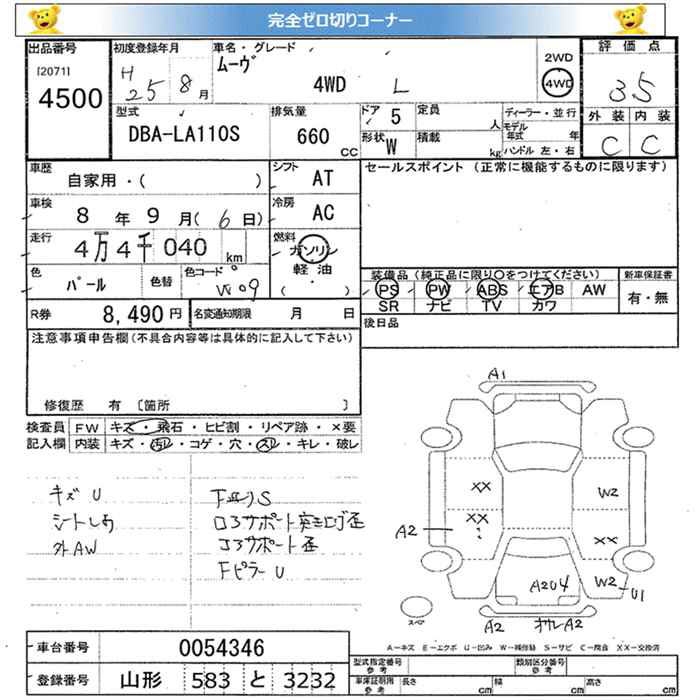 完全ゼロ切りコーナー
出品番号 初度登録年月 車名・グレード 評価点
[2071] 4500 H 25 8月 ムーヴ 4WD L 2WD 4WD 3.5
型式 排気量 ドア 5 定員 人 ディーラー・並行 外装 内装
DBA-LA110S 660 CC 形状 W 積載 kg モデル年式 年 ハンドル 左・右 C C
車歴 自家用・( ) シフト AT セールスポイント (正常に機能するものに限ります)
車検 8年 9月 (6日) 冷房 AC
走行 4万4千040 km 燃料 ガソリン 軽油 ( )
色 パール 色替 色コード W09 装備品 (純正品に限り○をつけてください) 新車保証書
PS PW ABS エアB AW 有・無
SR ナビ TV カワ
R券 8,490円 名変通知期限 月 日 後日品
注意事項申告欄(不具合内容等は具体的に記入して下さい)
修復歴 有 〔箇所 〕
検査員 FW キズ・飛石・ヒビ割・リペア跡・×要
記入欄 内装 キズ・汚レ・コゲ・穴・スリ・キレ・破レ
キズU
シートしわ
外AW
S
コアサポート
コアサポート歪
FピラーU
A1
XX W2
XX
A2 XX
A2U4 W2 U1
スペア
A2 A2
A−キズ E−エクボ U−凹み W−補修跡 S−サビ C−腐食 XX−交換済
車台番号 0054346
登録番号 山形 583 と 3232
型式指定番号 参考 類別区分番号 参考
車庫証明用 参考 長さ cm 幅 cm 高さ cm